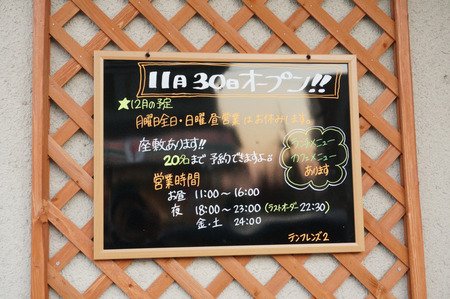 11月30日オープン!!
★12月の予定
月曜日全日・日曜昼営業はお休みします。
座敷あります!!
20名まで予約できますよ♪
ランチメニュー
カフェメニュー
あります
営業時間
お昼 11:00〜16:00
夜 18:00〜23:00(ラストオーダー22:30)
金・土 24:00
テンフレンズ2